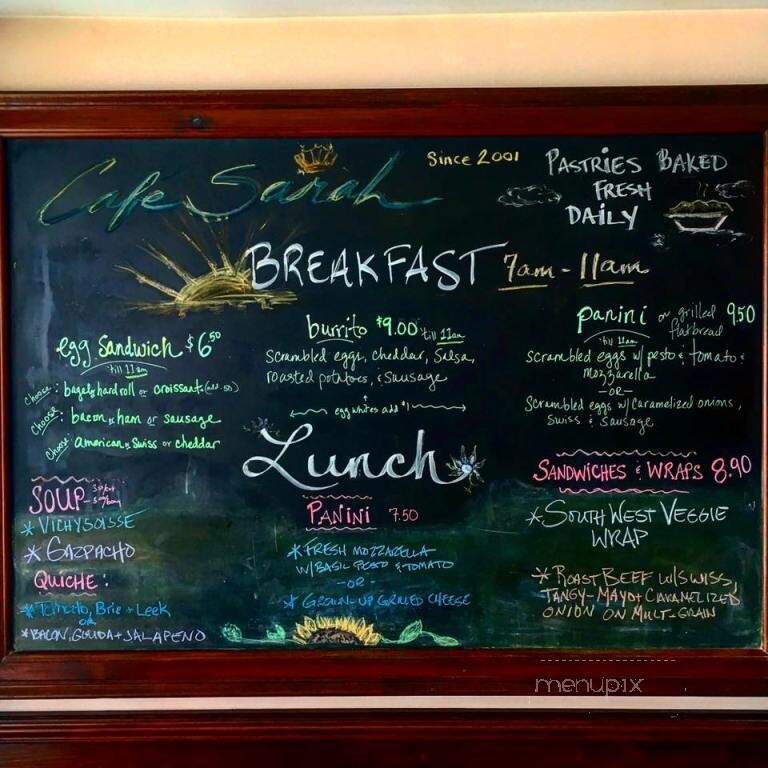 Café Sarah
Since 2001
PASTRIES BAKED
FRESH
DAILY
BREAKFAST 7am - 11am
egg Sandwich $6.50
'till 11am
Choose: bagel, hard roll or croissant (add .50)
Choose: bacon, ham or sausage
Choose: american, swiss or cheddar
burrito $9.00 'till 11am
Scrambled eggs, cheddar, Salsa,
roasted potatoes, & Sausage
egg whites add $1
panini or grilled flatbread 9.50
'till 11am
scrambled eggs w/ pesto & tomato &
mozzarella
-OR-
Scrambled eggs w/ Caramelized onions,
Swiss & Sausage
Lunch
SOUP
* VICHYSOISSE
* GAZPACHO
QUICHE:
* Tomato, Brie + Leek
OR
* BACON, GOUDA + JALAPENO
PANINI 7.50
* FRESH MOZZARELLA
W/ BASIL PESTO & TOMATO
-OR-
* GROWN-UP GRILLED CHEESE
SANDWICHES & WRAPS 8.90
* SOUTH WEST VEGGIE
WRAP
* ROAST BEEF W/ SWISS,
TANGY-MAYO + CARAMELIZED
ONION ON MULT-GRAIN
menupix